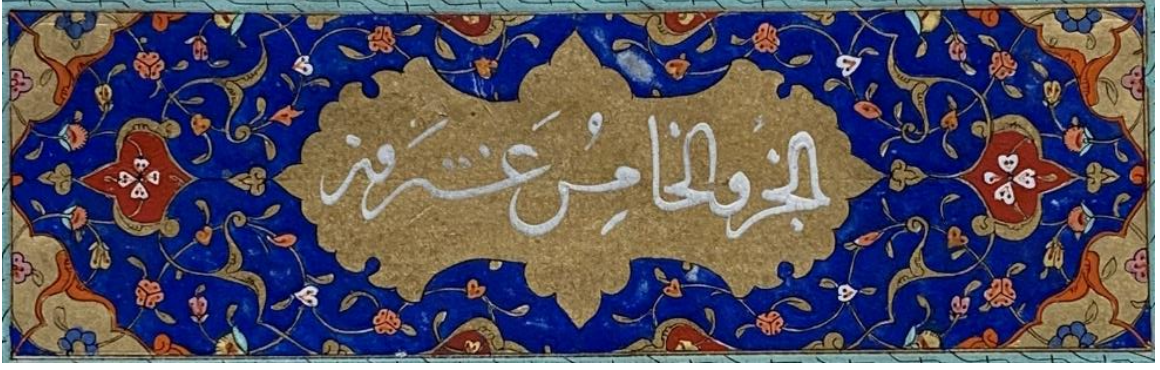 الجزؤ الخامِسُ عَشَرَ من